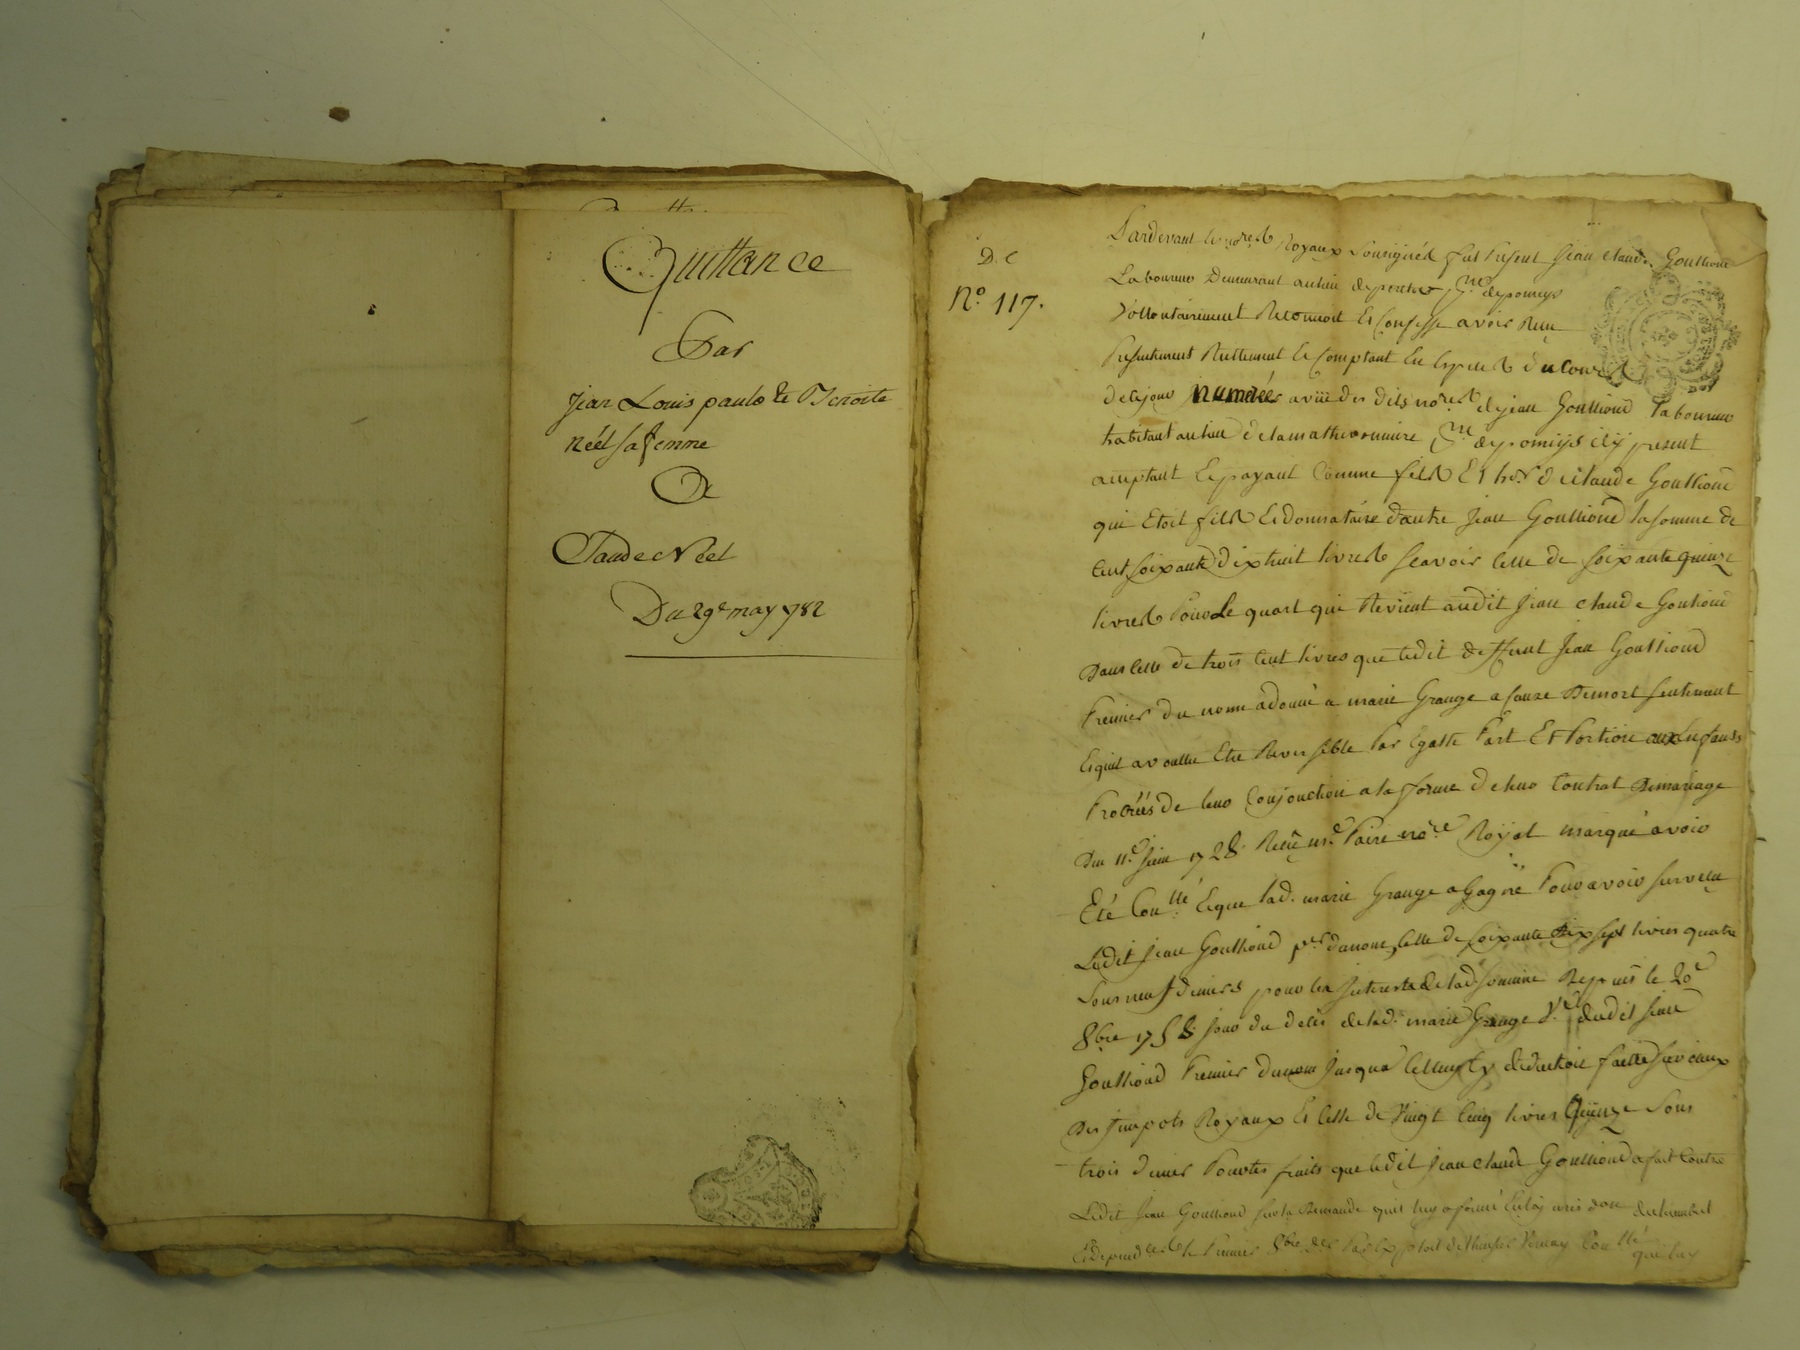 Quittance
Par
Jean Louis paulo & Benoite
Néel sa femme
De
Claude Néel
Du 29e may 782
De
No. 117.
Pardevant les nores Royaux Soussignés fut Present Jean Claude Gouttiond
Laboureur Demeurant au lieu de psse de pomeys
Vollontairement Reconnoit Et Confesse avoir Reçu
Presentement Reellement Et Comptant En Especes du Cours
de ce jour numérées a vüe des dits nores de jean Gouttiond Laboureur
habitant au lieu de la psse de pomeys icy present
acceptant Et payant Comme fils Et her. de Claude Gouttiond
qui Etoit fils Et donnataire d'autre Jean Gouttiond la somme de
Cent soixante dix huit livres scavoir celle de soixante quinze
livres Pour Le quart qui Revient audit Jean Claude Gouttiond
Dans celle de trois Cent livres que ledit deffunt Jean Gouttiond
Premier du nom a donné a marie Grange a cause De mort seulement
Et quil a voullu Etre Reversible Par Egalle Part Et Portion aux Enfants
Procréés de leur Conjonction a la forme de leur Contrat De mariage
Du 11e Juin 1728 Reçu me nore Royal marqué avoir
Eté Conllé Et que lad. marie Grange a Gagné Pour avoir survecu
Ledit Jean Gouttiond per du nom, celle de soixante dix sept livres quatre
Sous neuf deniers pour les Interests de lad. somme Depuis le 20e
8bre 1758 jour du decés de lad. marie Grange Ve dudit Jean
Gouttiond Premier du nom jusqua deduction faitte sur iceux
Des Impots Royaux Et celle de Vingt Cinq livres Quinze Sous
trois denier Pour les fraits que ledit Jean Claude Gouttiond a fait Contre
Ledit Jean Gouttiond sur la Demande quil luy a formé
Et le Premier 8bre Par Exploit de Conllé
qui luy